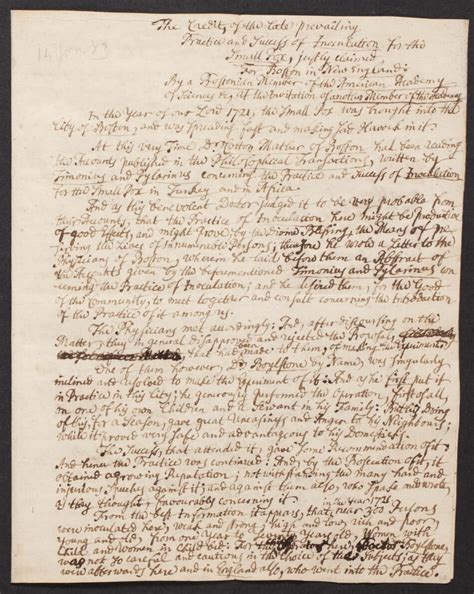 The Credit, of the late prevailing
Practice and Success of Inoculation for the
Small Pox, justly claimed
For Boston in New England:
By a Bostonian Member of the American Academy
of Sciences &c, at the Invitation of another Member of the Academy
In the Year of our Lord 1721, the Small Pox was brought into the
City of Boston, and was spreading fast and making sad Havock in it.
At this very Time Dr Cotton Mather of Boston had been reading
the Accounts published in the Philosophical Transactions, written by
Timonius and Pylarinus concerning the Practice and Success of Inoculation
for the Small Pox in Turkey and in Africa.
And as this benevolent Doctor judged it to be very probable from
these Accounts, that the Practice of Inoculation here might be productive
of good Effects, and might prove, by the divine Blessing, the Means of pre
serving the Lives of innumerable Persons; therefore he wrote a Letter to the
Physicians of Boston, wherein he laid before them an Abstract of
the Accounts given by the beforementioned Timonius and Pylarinus con
cerning the Practice of Inoculation; and he desired them, for the Good
of the Community, to meet together and consult concerning the Introduction
of the Practice of it among us.
The Physicians met accordingly: And, after discoursing on the
Matter, they in general disapproved and rejected the Proposal,
that had been made to them of making the Experiment.
One of them however, Dr Boylstone by Name, was singularly
inclined and resolved to make the Experiment of it: And as he first put it
in Practice in this City; he generously performed the Operation, first of all,
on one of his own Children and a Servant in his Family: But his Doing
of this, for a Season, gave great Uneasiness and Anger to his Neighbours;
while it proved very safe and advantageous to his Domesticks.
The Success, that attended it, gave some Recommendation of it.
And hence the Practice was continued: And, by the Prosecution of it, it
obtained a growing Reputation; notwithstanding the many hard and
injurious Speeches against it; and against them also, who spoke and wrote,
as they thought, favourably concerning it.
in the Year 1721
From the best Information it appears, that near 300 Persons
were inoculated here, weak and strong, high and low, rich and poor,
young and old, from one Year to Seventy Years old, Women with
Child and Women in Child bed: For the Doctor Boylstone,
was not so careful and cautious in the Choice of the Subjects, as they
were afterwards here and in England also, who went into the Practice.